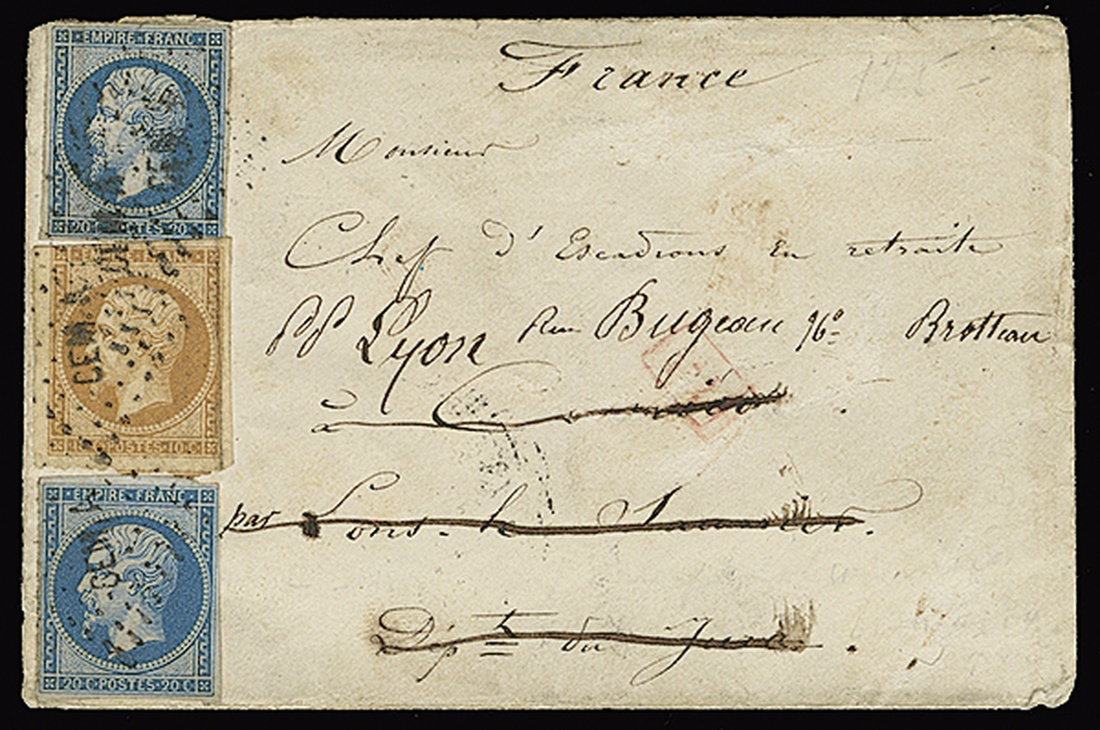 France
Monsieur
Chef d'Escadrons en retraite
PP Lyon Rue Bugeau 96º Brotteau
à
par Lons-le Saunier.
Dépt du Jura.
EMPIRE FRANC
20 C POSTES 20 C
10 C POSTES 10 C
EMPIRE FRANC
20 C POSTES 20 C